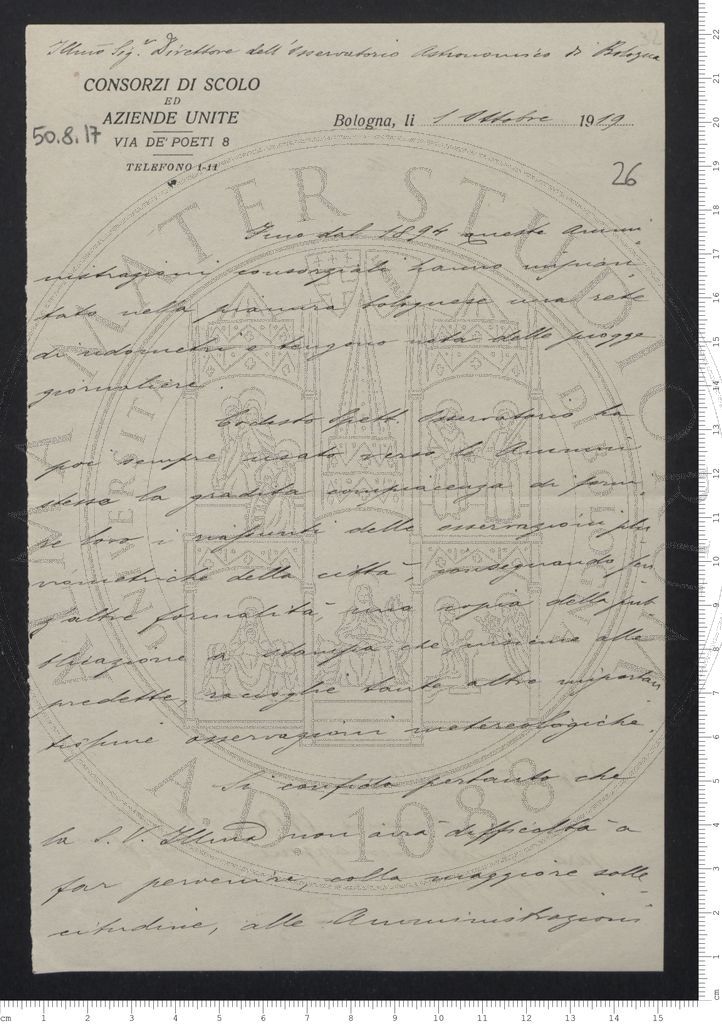 Illmo Sigr Direttore dell'Osservatorio Astronomico di Bologna
CONSORZI DI SCOLO
ED
AZIENDE UNITE
VIA DE' POETI 8
TELEFONO 1-11
50.8.17
Bologna, li 1 Ottobre 1919
26
Fino dal 1894 queste Ammi-
nistrazioni consorziali hanno impian-
tato nella pianura bolognese una rete
di udometri e tengono nota delle piogge
giornaliere.
Codesto Spett. Osservatorio ha
poi sempre usato verso le Ammini
stesse la gradita compiacenza di forni-
re loro i riassunti delle osservazioni plu-
viometriche della città, consegnando sen-
z'altre formalità, una copia della pub-
blicazione a stampa che, insieme alle
predette, raccoglie tante altre importan-
tissime osservazioni metereologiche.
Si confida pertanto che
la S. V. Illma non avrà difficoltà a
far pervenire, colla maggiore solle-
citudine, alle Amministrazioni
ALMA MATER STUDIORUM
A.D. 1088